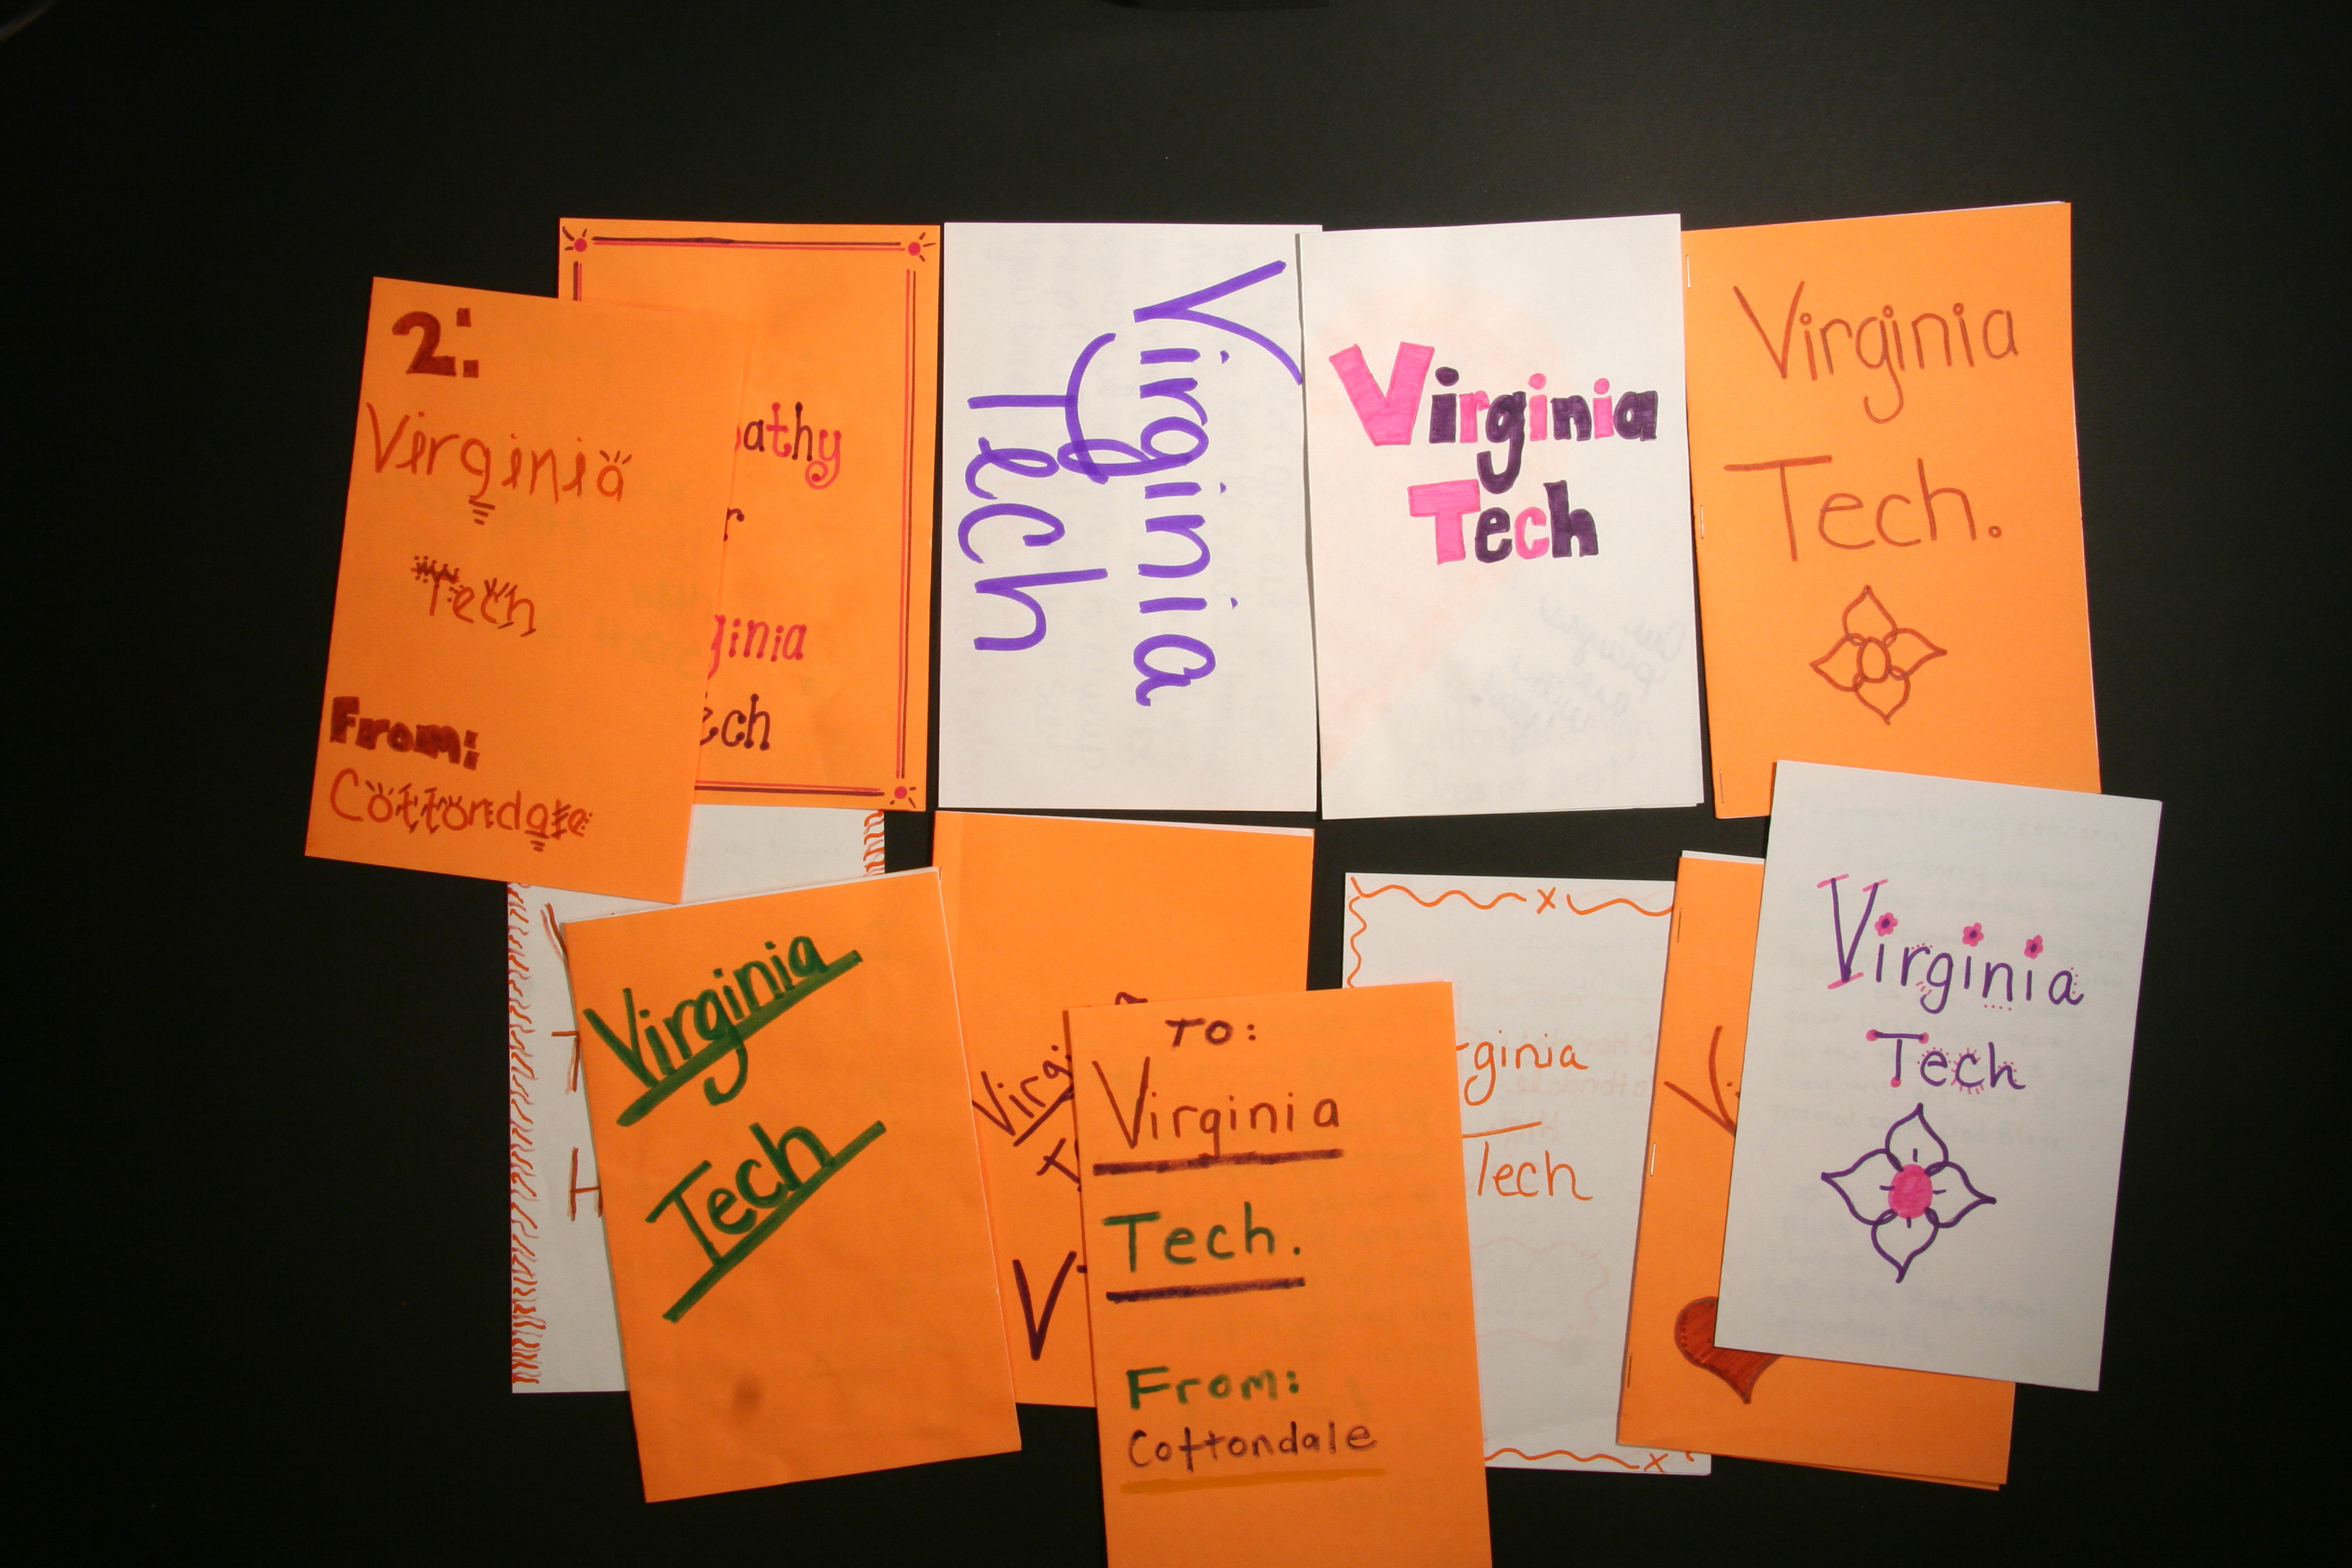 2:
Virginia
Tech
From:
Cottondale
athy
r
ginia
ech
Virginia
Tech
Virginia
Tech
Virginia
Tech.
Virginia
Tech
Virgi
V
TO:
Virginia
Tech.
From:
Cottondale
rginia
Tech
Vi
Virginia
Tech